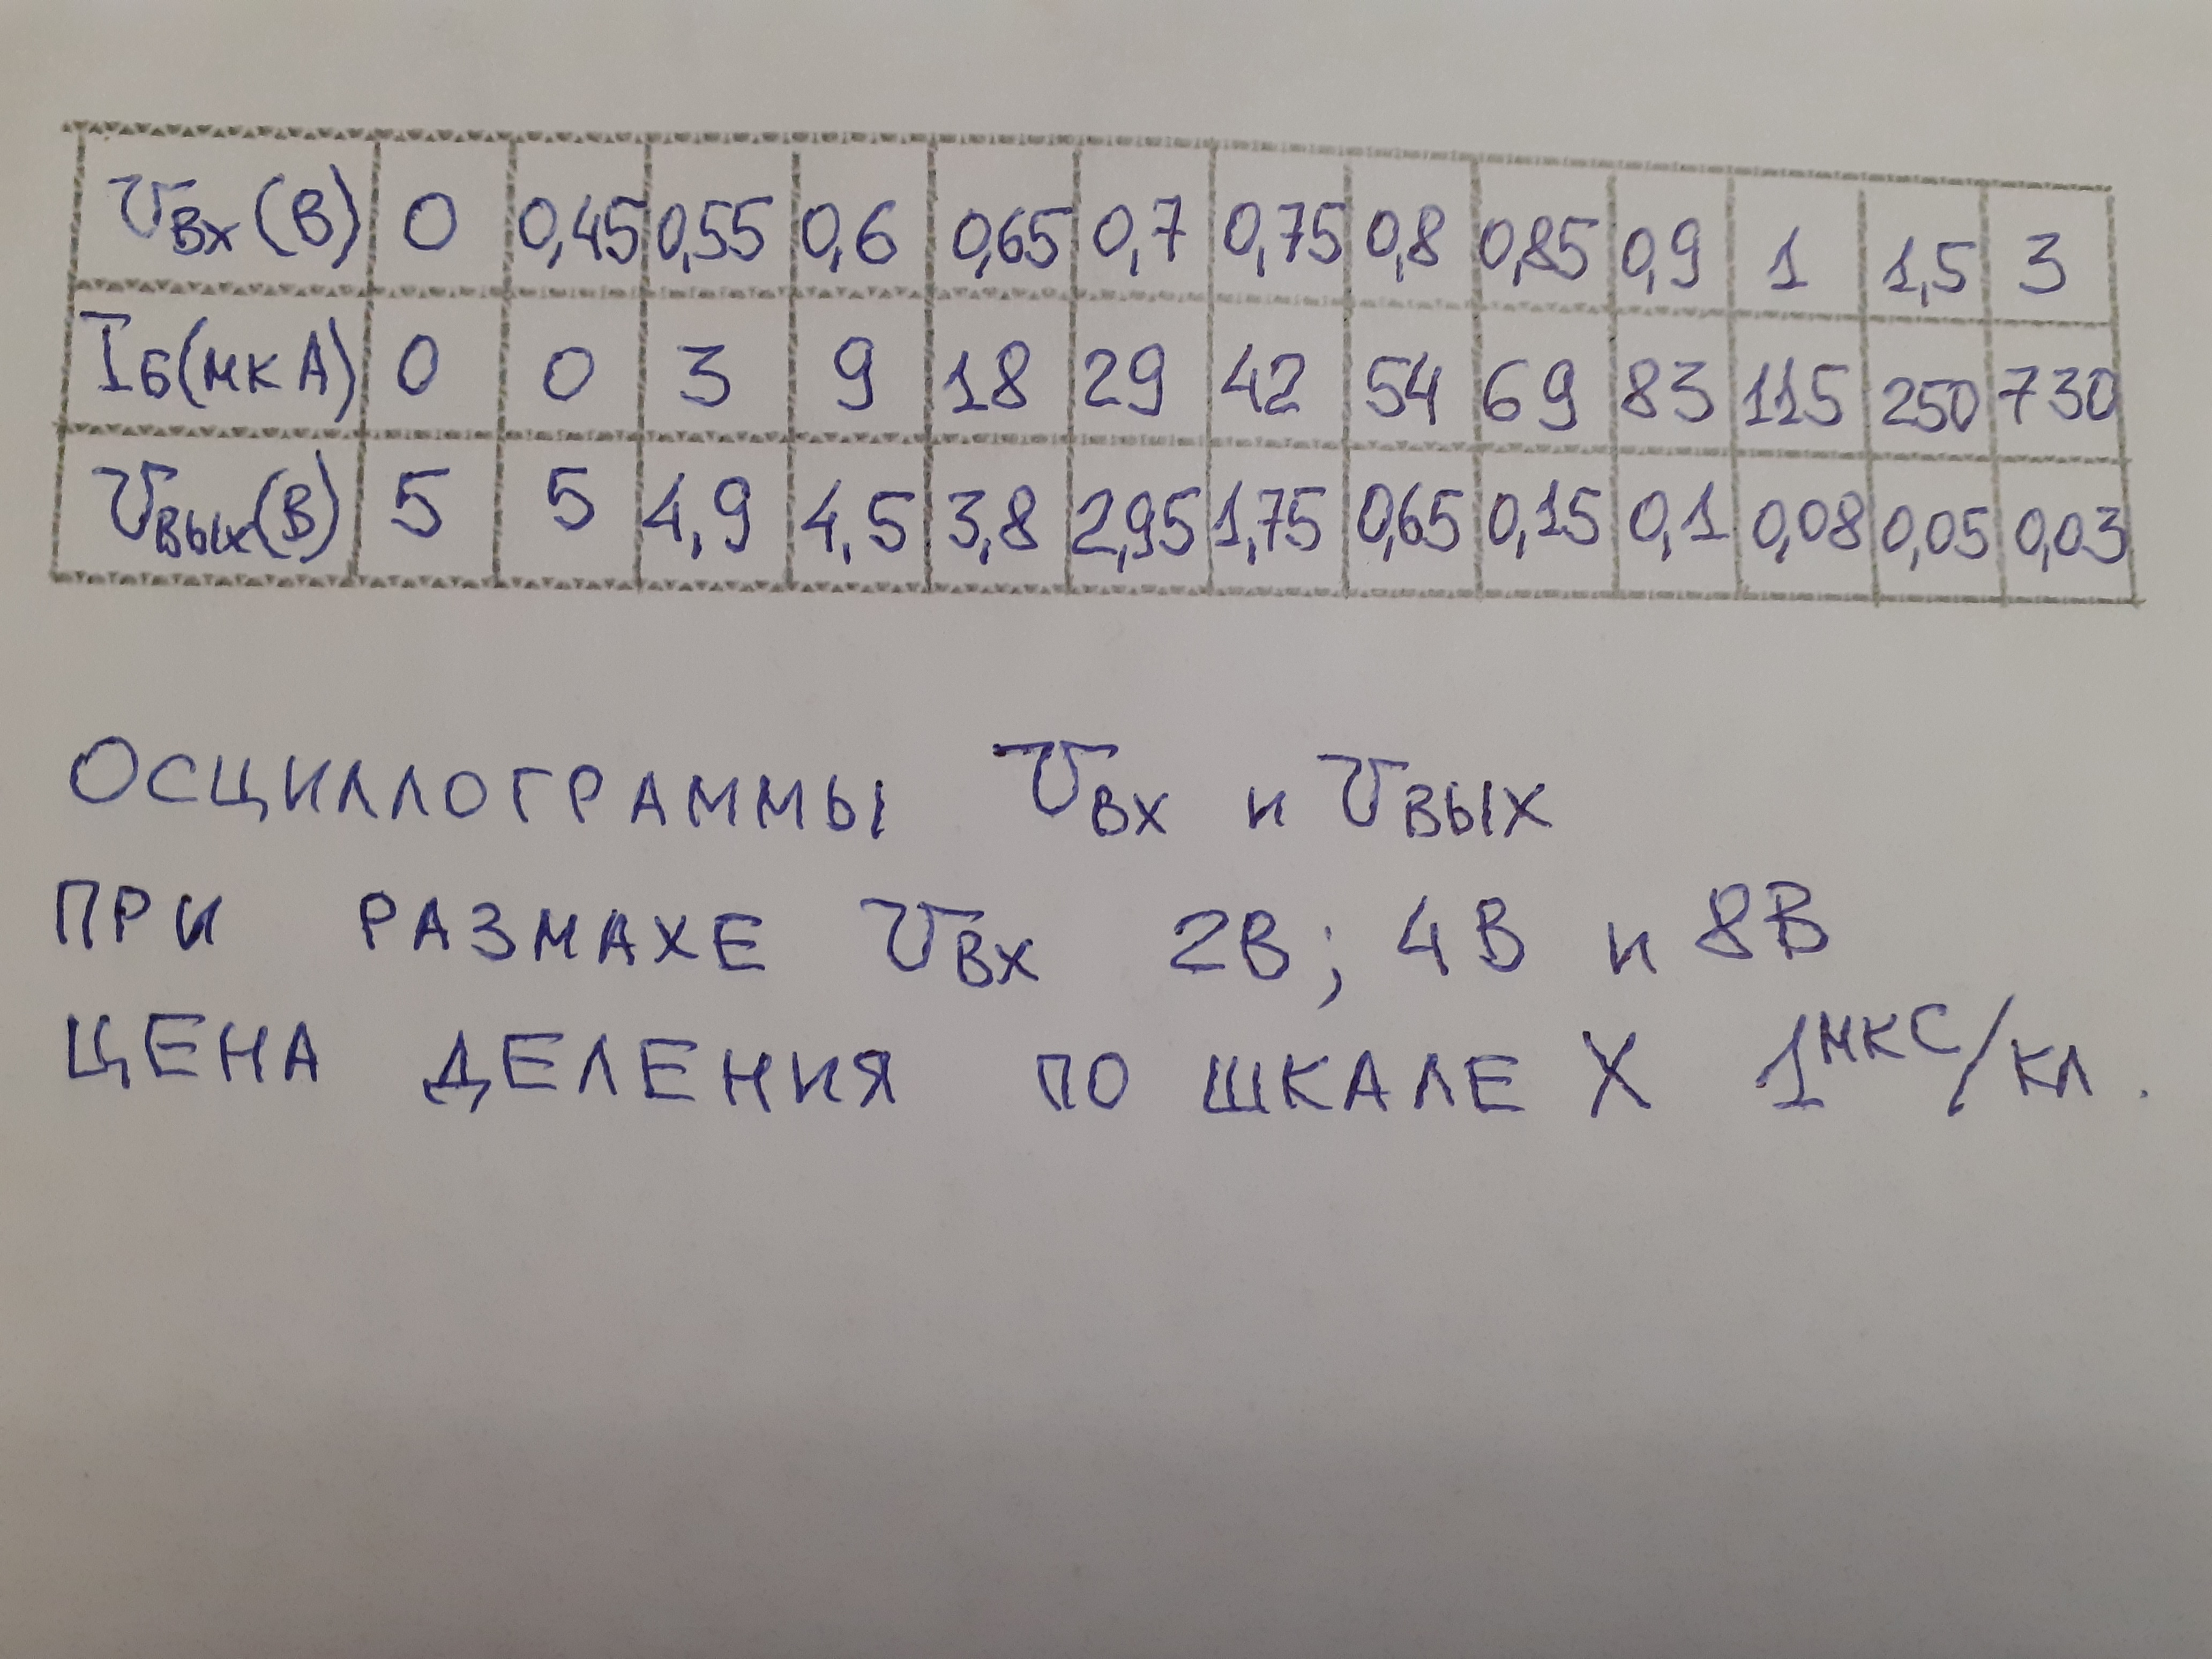 Uвх (В) 0 0,45 0,55 0,6 0,65 0,7 0,75 0,8 0,85 0,9 1 1,5 3
Iб (мкА) 0 0 3 9 18 29 42 54 69 83 115 250 730
Uвых (В) 5 5 4,9 4,5 3,8 2,95 1,75 0,65 0,15 0,1 0,08 0,05 0,03
ОСЦИЛЛОГРАММЫ Uвх и Uвых
ПРИ РАЗМАХЕ Uвх 2В; 4В и 8В
ЦЕНА ДЕЛЕНИЯ ПО ШКАЛЕ Х 1 мкс/кл.